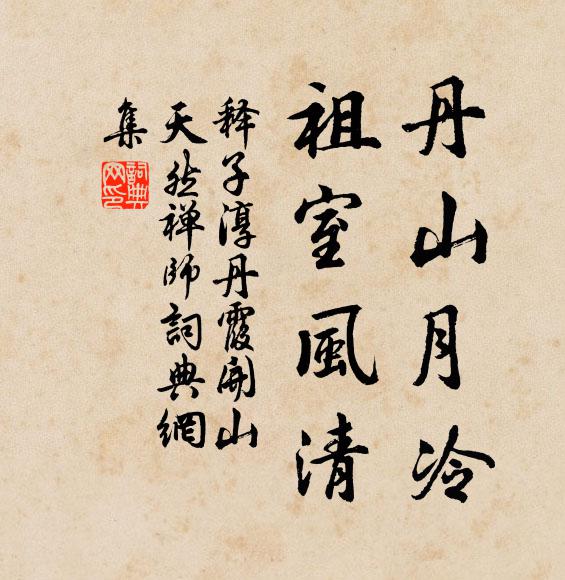 丹山月冷
祖室風清
释子淳丹霞開山
天然禅师詞典網
集
詞典
网印